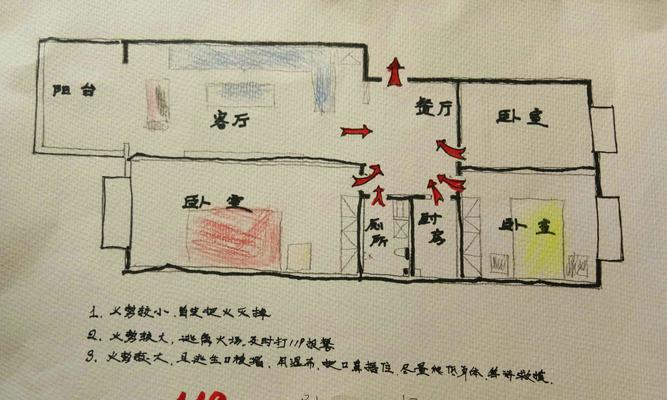 阳台
客厅
餐厅
卧室
卧室
厕所
厨房
卧室
1. 火势较小,首先把火灭掉
2. 火势较大,逃离火场,及时打119报警
3. 火势较大,且逃生口被堵,用湿布,捂口鼻捂住,尽量趴低身体,等待救援.
119